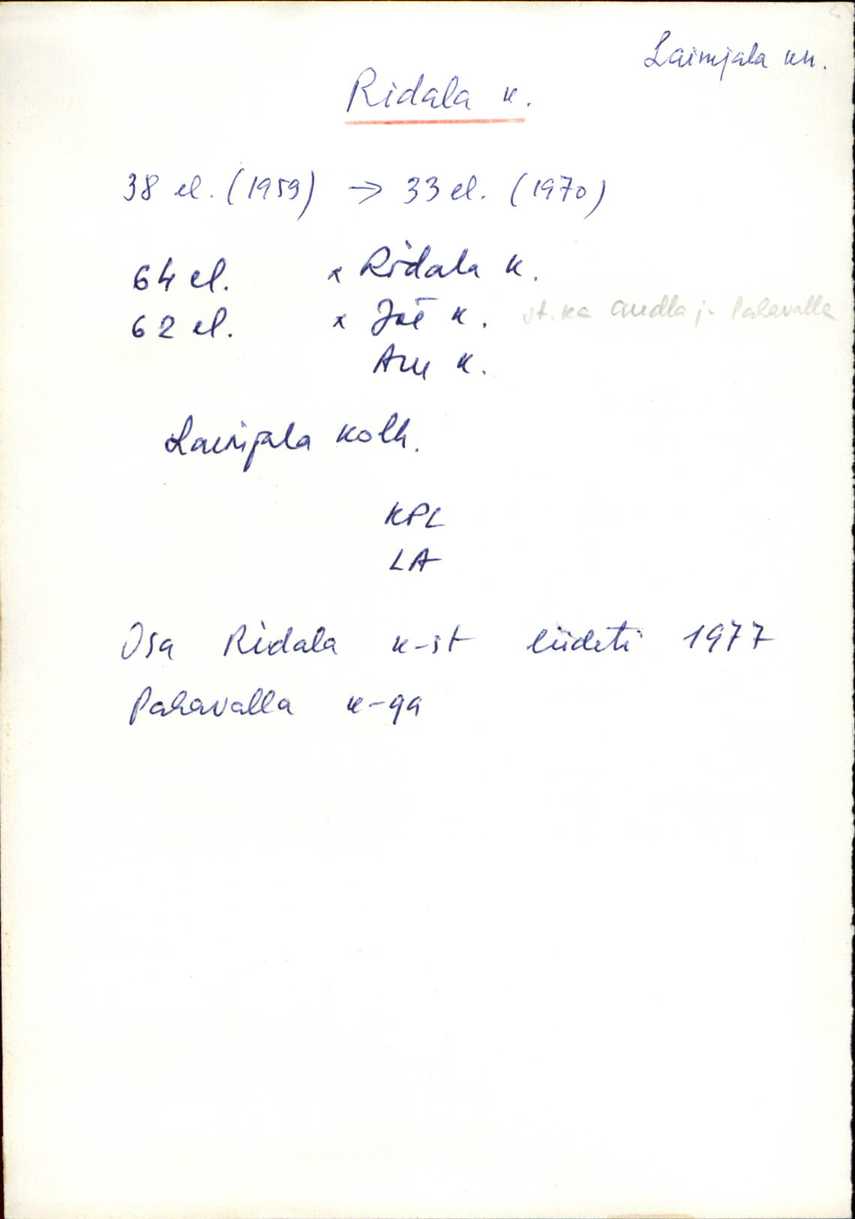 Laimjala kn.
Ridala k.
38 el. (1959) → 33 el. (1970)
64 el. x Ridala k.
62 el. x Jõe k. st. ka Audla ja Pahavalla
Aru k.
Laimjala kolh.
KPL
LA
Osa Ridala k-st liideti 1977
Pahavalla k-ga